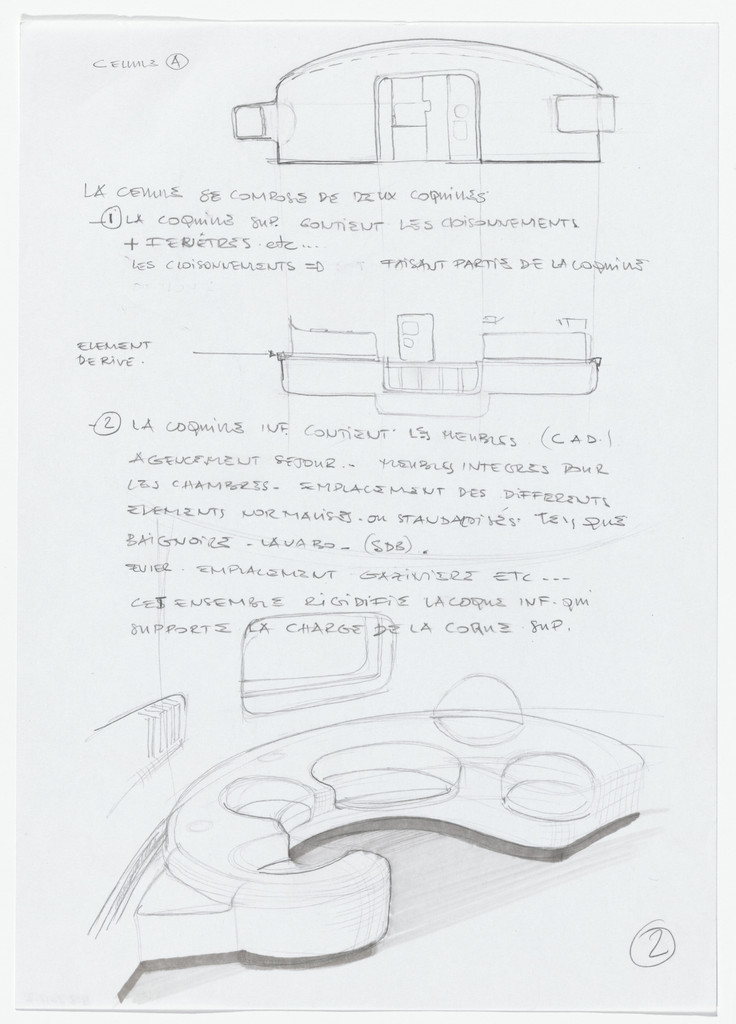 CELLULE A
LA CELLULE SE COMPOSE DE DEUX COQUILLES
1 LA COQUILLE SUP. CONTIENT LES CLOISONNEMENTS
+ FENÊTRES etc....
LES CLOISONNEMENTS => FAISANT PARTIE DE LA COQUILLE
ELEMENT
DERIVE.
2 LA COQUILLE INF. CONTIENT LES MEUBLES (C.A.D.)
AGENCEMENT SEJOUR.. MEUBLES INTEGRES POUR
LES CHAMBRES. EMPLACEMENT DES DIFFERENTS
ELEMENTS NORMALISES. OU STANDARDISÉS. TELS QUE
BAIGNOIRE - LAVABO - (SDB).
EVIER. EMPLACEMENT GAZINIERE ETC ---
CET ENSEMBLE RIGIDIFIE LA COQUE INF. QUI
SUPPORTE LA CHARGE DE LA COQUE SUP.
2